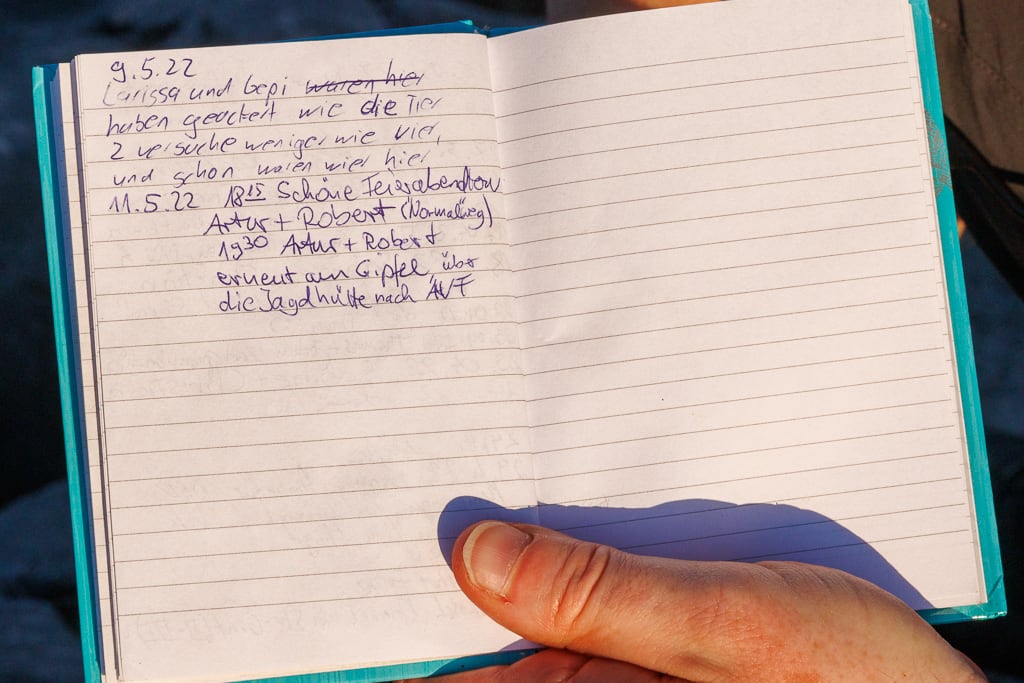 9.5.22
Larissa und Bepi waren hier
haben geackert wie die Tier
2 versuche weniger wie vier,
und schon waren wier hier
11.5.22 18¹⁵ Schöne Feierabendtour
Artur + Robert (Normalweg)
19³⁰ Artur + Robert
erneut am Gipfel, über
die Jagdhütte nach